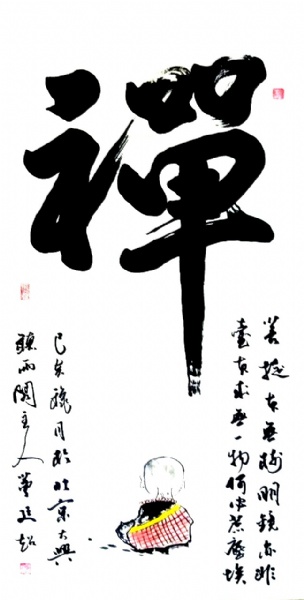 禪
菩提本無樹明鏡亦非
臺本來無一物何處惹塵埃
己亥臘月於北京大興
聽雨閣主人董廷超